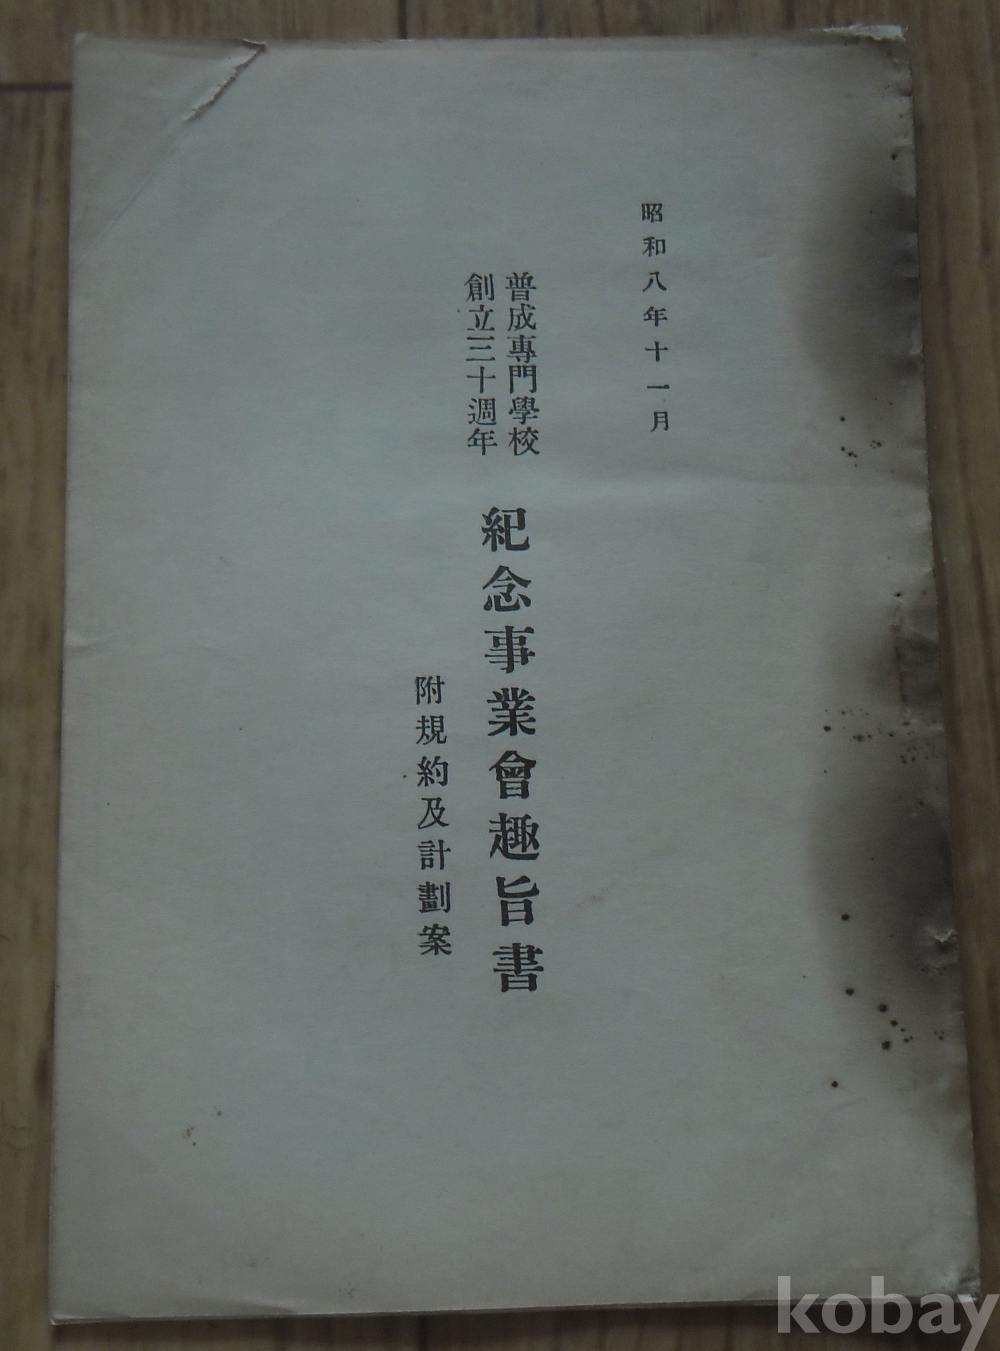 昭和八年十一月
普成專門學校
創立三十週年
紀念事業會趣旨書
附規約及計劃案
kobay